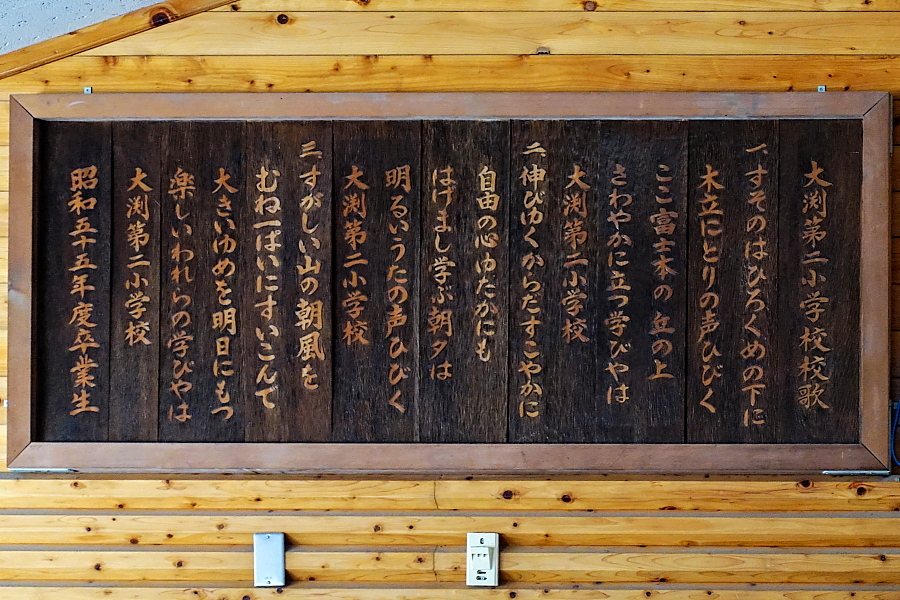 大渕第二小学校校歌
一 すそのはひろくめの下に
木立にとりの声ひびく
ここ富士本の丘の上
さわやかに立つ学びやは
大渕第二小学校
二 伸びゆくからだすこやかに
自由の心ゆたかにも
はげまし学ぶ朝夕は
明るいうたの声ひびく
大渕第二小学校
三 すがしい山の朝風を
むね一ぱいにすいこんで
大きいゆめを明日にもつ
楽しいわれらの学びやは
大渕第二小学校
昭和五十五年度卒業生